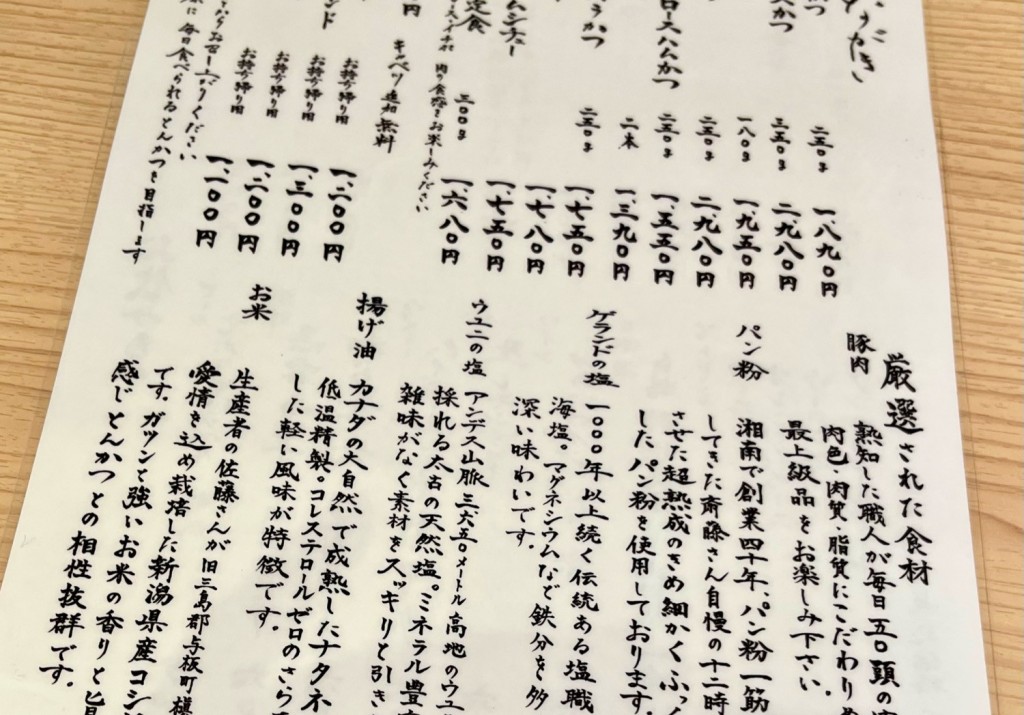 かつ 二五〇g 一、八九〇円
かつ 三五〇g 二、九八〇円
一八〇g 一、九五〇円
二五〇g 二、九八〇円
ロースハムかつ 二五〇g 一、五五〇円
二本 一、三九〇円
かつ 二五〇g 一、七五〇円
一、七八〇円
ムシチュー 一、七五〇円
定食 三〇〇g 一、六八〇円
肉の食感をお楽しみください
円 キャベツ追加 無料
お持ち帰り用 一、二〇〇円
ンド お持ち帰り用 一、三〇〇円
お持ち帰り用 一、二〇〇円
お持ち帰り用 一、一〇〇円
からお召し上がりください
に毎日食べられるとんかつを目指します
厳選された食材
豚肉 熟知した職人が毎日五〇頭の
肉色・肉質・脂質にこだわり
最上級品をお楽しみ下さい。
パン粉 湘南で創業四十年、パン粉一筋
してきた斎藤さん自慢の十二時
させた超熟成のきめ細かくふっく
したパン粉を使用しております。
ゲランドの塩 一〇〇〇年以上続く伝統ある塩職
海塩。マグネシウムなど鉄分を多
深い味わいです。
ウユニの塩 アンデス山脈三六五〇メートル高地のウユ
採れる太古の天然塩。ミネラル豊
雑味がなく素材をスッキリと引き
揚げ油 カナダの大自然で成熟したナタネ
低温精製。コレステロールゼロのさら
した軽い風味が特徴です。
お米 生産者の佐藤さんが旧三島郡与板町様
愛情を込め栽培した新潟県産コシ
です。ガツンと強いお米の香りと旨
感じとんかつとの相性抜群です。